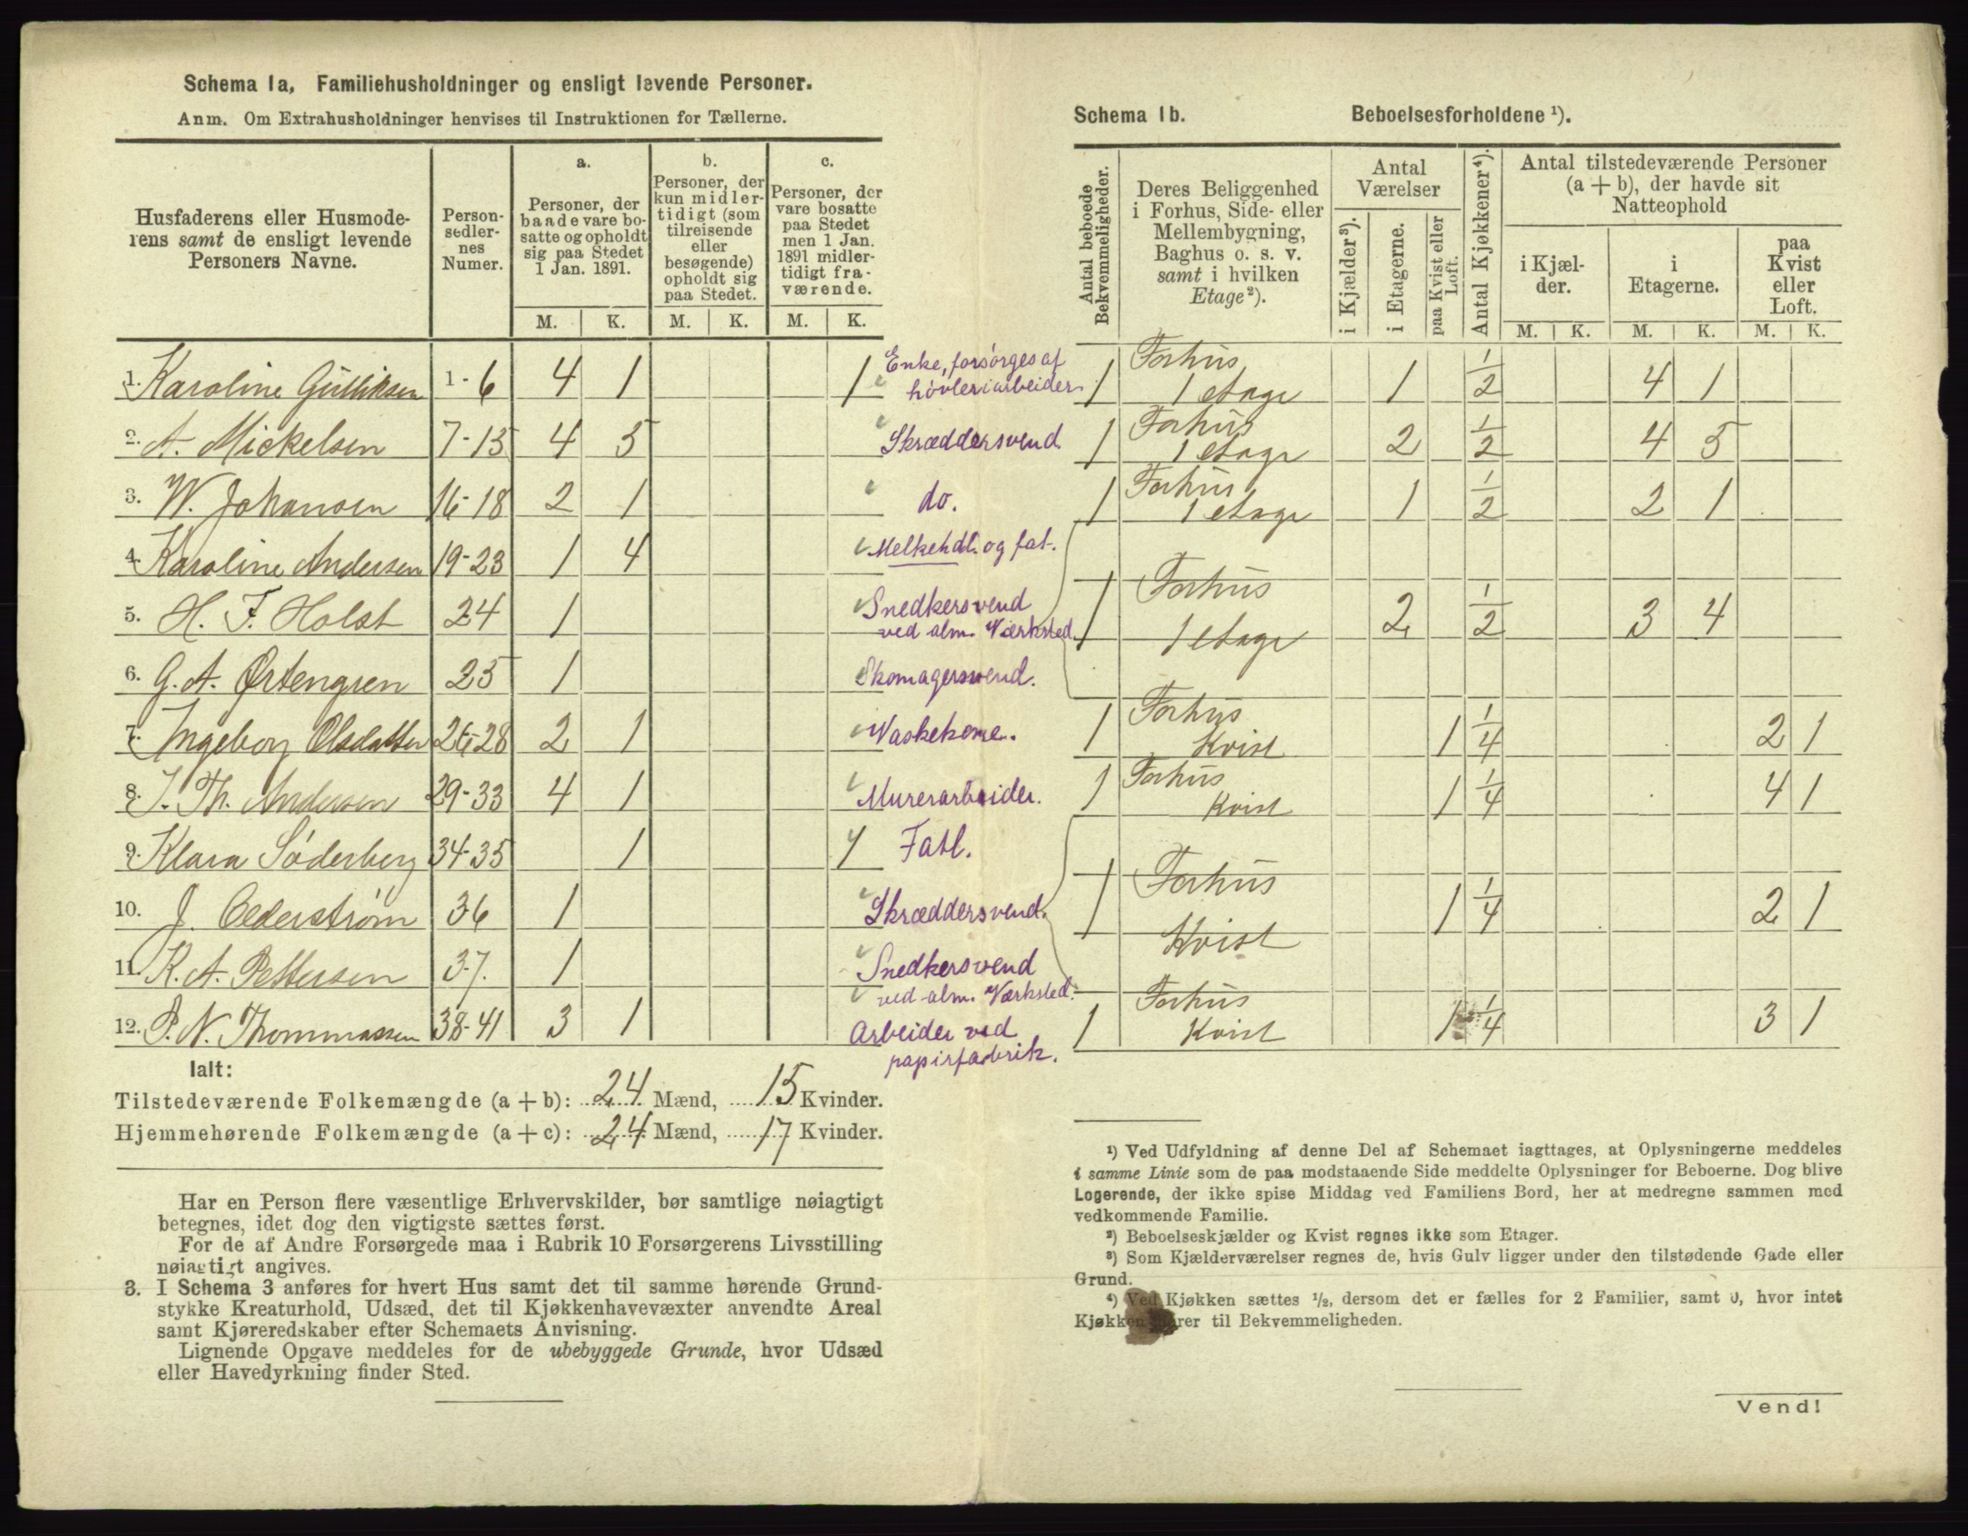 Schema 1a, Familiehusholdninger og ensligt levende Personer.
Anm. Om Extrahusholdninger henvises til Instruktionen for Tællerne.
Husfaderens eller Husmode-
rens samt de ensligt levende
Personers Navne.
Person-
sedler-
nes
Numer.
a.
Personer, der
baade vare bo-
satte og opholdt
sig paa Stedet
1 Jan. 1891.
b.
Personer, der
kun midler-
tidigt (som
tilreisende
eller
besøgende)
opholdt sig
paa Stedet.
c.
Personer, der
vare bosatte
paa Stedet
men 1 Jan.
1891 midler-
tidigt fra-
værende.
M. K. M. K. M. K.
1. Karoline Gulliksen 1-6 4 1 1 Enke, forsørges af
høvleriarbeider
2. A. Mickelsen 7-15 4 5 Skræddersvend
3. W. Johansen 16-18 2 1 do.
4. Karoline Andersen 19-23 1 4 Melkehdl. og fat.
5. H. F. Holst 24 1 Snedkersvend
ved alm. Værksted.
6. G. A. Ørtengren 25 1 Skomagersvend.
7. Ingeborg Olsdatter 26-28 2 1 Vaskekone.
8. J. Th. Andersen 29-33 4 1 Murerarbeider.
9. Klara Söderberg 34-35 1 1 Fatl.
10. J. Cederstrøm 36 1 Skræddersvend.
11. K. A. Pettersen 37. 1 Snedkersvend
ved alm. Værksted.
12. P. N. Thommassen 38-41 3 1 Arbeider ved
papirfabrik.
Ialt:
Tilstedeværende Folkemængde (a + b): 24 Mænd, 15 Kvinder.
Hjemmehørende Folkemængde (a + c): 24 Mænd, 17 Kvinder.
Har en Person flere væsentlige Erhvervskilder, bør samtlige nøiagtigt
betegnes, idet dog den vigtigste sættes først.
For de af Andre Forsørgede maa i Rubrik 10 Forsørgerens Livsstilling
nøiagtigt angives.
3. I Schema 3 anføres for hvert Hus samt det til samme hørende Grund-
stykke Kreaturhold, Udsæd, det til Kjøkkenhavevæxter anvendte Areal
samt Kjøreredskaber efter Schemaets Anvisning.
Lignende Opgave meddeles for de ubebyggede Grunde, hvor Udsæd
eller Havedyrkning finder Sted.
Schema 1b. Beboelsesforholdene ¹).
Antal beboede
Bekvemmeligheder.
Deres Beliggenhed
i Forhus, Side- eller
Mellembygning,
Baghus o. s. v.
samt i hvilken
Etage²).
Antal
Værelser
i Kjælder³).
i Etagerne.
paa Kvist eller
Loft.
Antal Kjøkkener⁴).
Antal tilstedeværende Personer
(a + b), der havde sit
Natteophold
i Kjæl-
der.
i
Etagerne.
paa
Kvist
eller
Loft.
M. K. M. K. M. K.
1 Forhus
1 etage 1 1/2 4 1
1 Forhus
1 etage 2 1/2 4 5
1 Forhus
1 etage 1 1/2 2 1
1 Forhus
1 etage 2 1/2 3 4
1 Forhus
Kvist 1 1/4 2 1
1 Forhus
Kvist 1 1/4 4 1
1 Forhus
Kvist 1 1/4 2 1
1 Forhus
Kvist 1 1/4 3 1
¹) Ved Udfyldning af denne Del af Schemaet iagttages, at Oplysningerne meddeles
i samme Linie som de paa modstaaende Side meddelte Oplysninger for Beboerne. Dog blive
Logerende, der ikke spise Middag ved Familiens Bord, her at medregne sammen med
vedkommende Familie.
²) Beboelseskjælder og Kvist regnes ikke som Etager.
³) Som Kjælderværelser regnes de, hvis Gulv ligger under den tilstødende Gade eller
Grund.
⁴) Ved Kjøkken sættes ½, dersom det er fælles for 2 Familier, samt 0, hvor intet
Kjøkken hører til Bekvemmeligheden.
Vend!